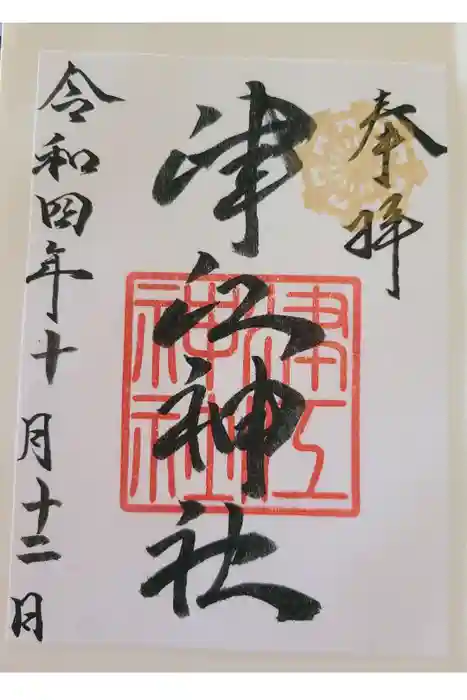 奉拝
津江神社
津江
神社
令和四年十月十二日